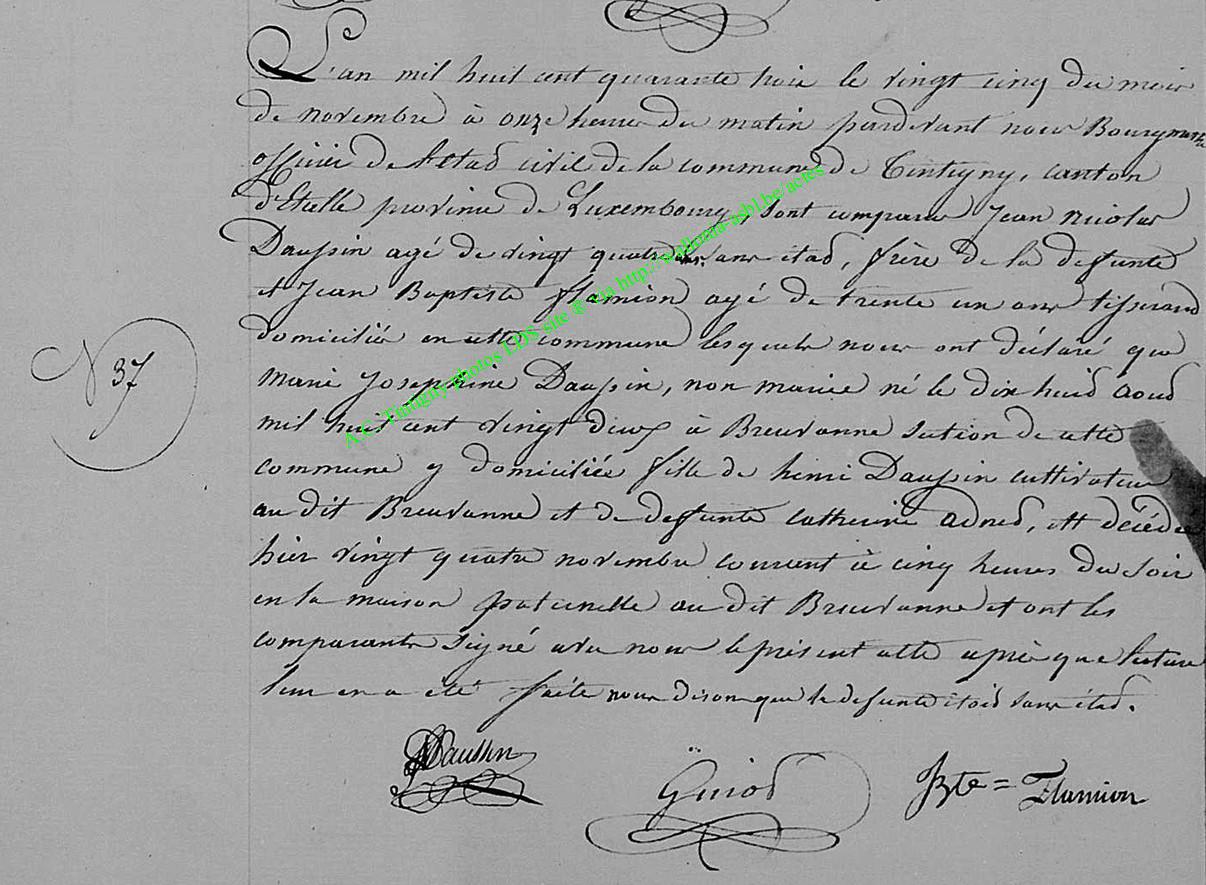 L'an mil huit cent quarante trois le vingt cinq du mois
de novembre à onze heures du matin pardevant nous Bourgmestre
officier de l'Etad civil de la commune de Tintigny, canton
d'Etalle province de Luxembourg, sont comparus Jean nicolas
Daussin agé de vingt quatre ans sans etad, frère de la defunte
et Jean Baptiste Flamion agé de trente un ans tisserand
domiciliés en cette commune lesquels nous ont déclaré que
Marie Josephine Daussin, non mariée né le dix huid aoud
mil huit cent vingt deux à Breuvanne section de cette
commune y domiciliée fille de henri Daussin cultivateur
au dit Breuvanne et de defunte Catherine adned, est décédée
hier vingt quatre novembre courant à cinq heures du soir
en sa maison paternelle au dit Breuvanne et ont les
N 37
comparants signé avec nous le présent acte après que lecture
leur en a été faite nous disons que la defunte étoid sans étad.
Daussin
Guiod
JBte = Flamion
A.C. Tintigny photos LDS site @ via http://wallonia-asbl.be/actes